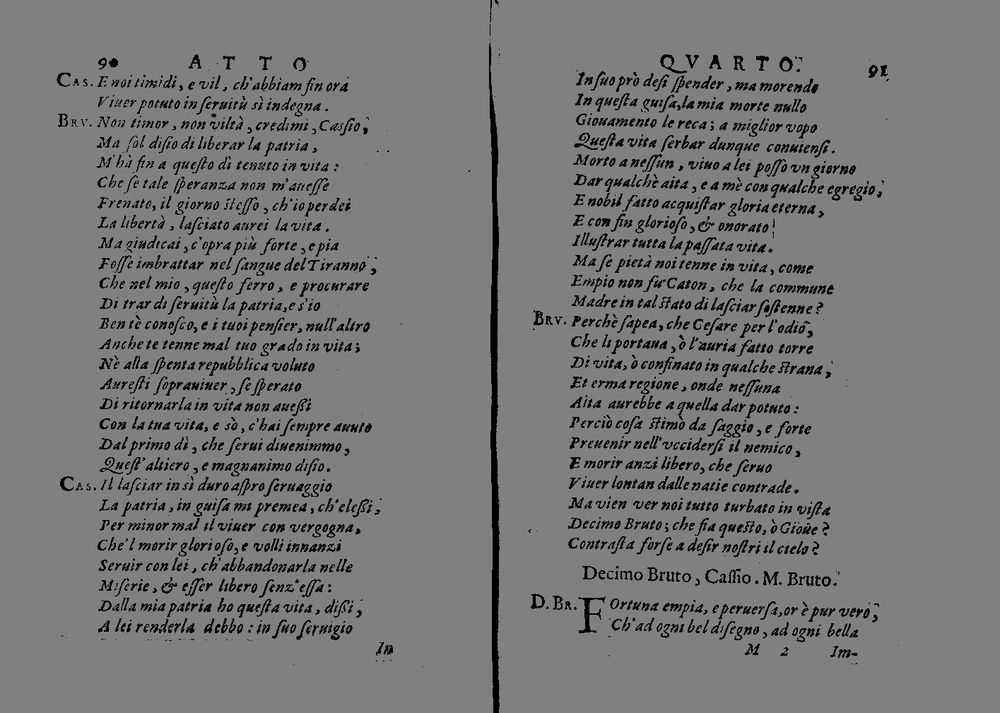 90 ATTO
CAS. E noi timidi, e vil, ch'abbiam fin ora
Viuer potuto in ſeruitù sì indegna.
BRV. Non timor, non viltà, credimi, Caſſio,
Ma ſol diſio di liberar la patria,
M'hà fin a queſto dì tenuto in vita:
Che ſe tale ſperanza non m'aueſſe
Frenato, il giorno ſteſſo, ch'io perdei
La libertà, laſciato aurei la vita.
Ma giudicai, c'opra più forte, e pia
Foſſe imbrattar nel ſangue del Tiranno,
Che nel mio, queſto ferro, e procurare
Di trar di ſeruitù la patria, e s'io
Ben tè conoſco, e i tuoi penſier, null'altro
Anche te tenne mal tuo grado in vita;
Nè alla ſpenta repubblica voluto
Aureſti ſoprauiuer, ſe ſperato
Di ritornarla in vita non aueſſi
Con la tua vita, e sò, c'hai ſempre auuto
Dal primo dì, che ſerui diuenimmo,
Queſt'altiero, e magnanimo diſio.
CAS. Il laſciar in sì duro aſpro ſeruaggio
La patria, in guiſa mi premea, ch'eleſſi,
Per minor mal il viuer con vergogna,
Che'l morir glorioſo, e volli innanzi
Seruir con lei, ch'abbandonarla nelle
Miſerie, & eſſer libero ſenz'eſſa:
Dalla mia patria ho queſta vita, diſſi,
A lei renderla debbo: in ſuo ſeruigio
In
QVARTO. 91
In ſuo prò deſi ſpender, ma morendo
In queſta guiſa, la mia morte nullo
Giouamento le reca; a miglior vopo
Queſta vita ſerbar dunque conuienſi.
Morto a neſſun, viuo a lei poſſo vn giorno
Dar qualchè aita, e a mè con qualche egregio,
E nobil fatto acquiſtar gloria eterna,
E con fin glorioſo, & onorato
Illuſtrar tutta la paſſata vita.
Ma ſe pietà noi tenne in vita, come
Empio non fu Caton, che la commune
Madre in tal ſtato di laſciar ſoſtenne?
BRV. Perchè ſapea, che Ceſare per l'odio,
Che li portaua, ò l'auria fatto torre
Di vita, ò confinato in qualche ſtrana,
Et erma regione, onde neſſuna
Aita aurebbe a quella dar potuto:
Perciò coſa ſtimò da ſaggio, e forte
Preuenir nell'vcciderſi il nemico,
E morir anzi libero, che ſeruo
Viuer lontan dalle natie contrade.
Ma vien ver noi tutto turbato in viſta
Decimo Bruto; che fia queſto, ò Gioue?
Contraſta forſe a deſir noſtri il cielo?
Decimo Bruto, Caſſio. M. Bruto.
D. BR. FOrtuna empia, e peruerſa, or è pur vero,
Ch'ad ogni bel diſegno, ad ogni bella
M 2 Im-